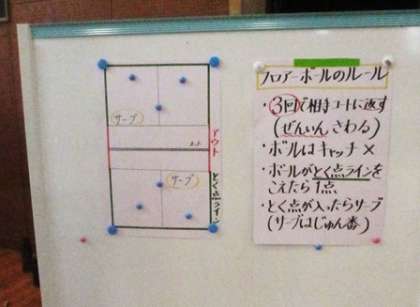 (サーブ)
アウト
(サーブ)
とく点ライン
フロアーボールのルール
・3回で相手コートに返す
(ぜんいん さわる)
・ボールはキャッチ×
・ボールがとく点ラインを
こえたら1点
・とく点が入ったらサーブ
(サーブはじゅん番)